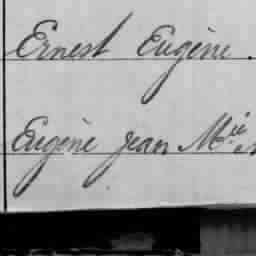 Ernest Eugène.
Eugène Jean Mie